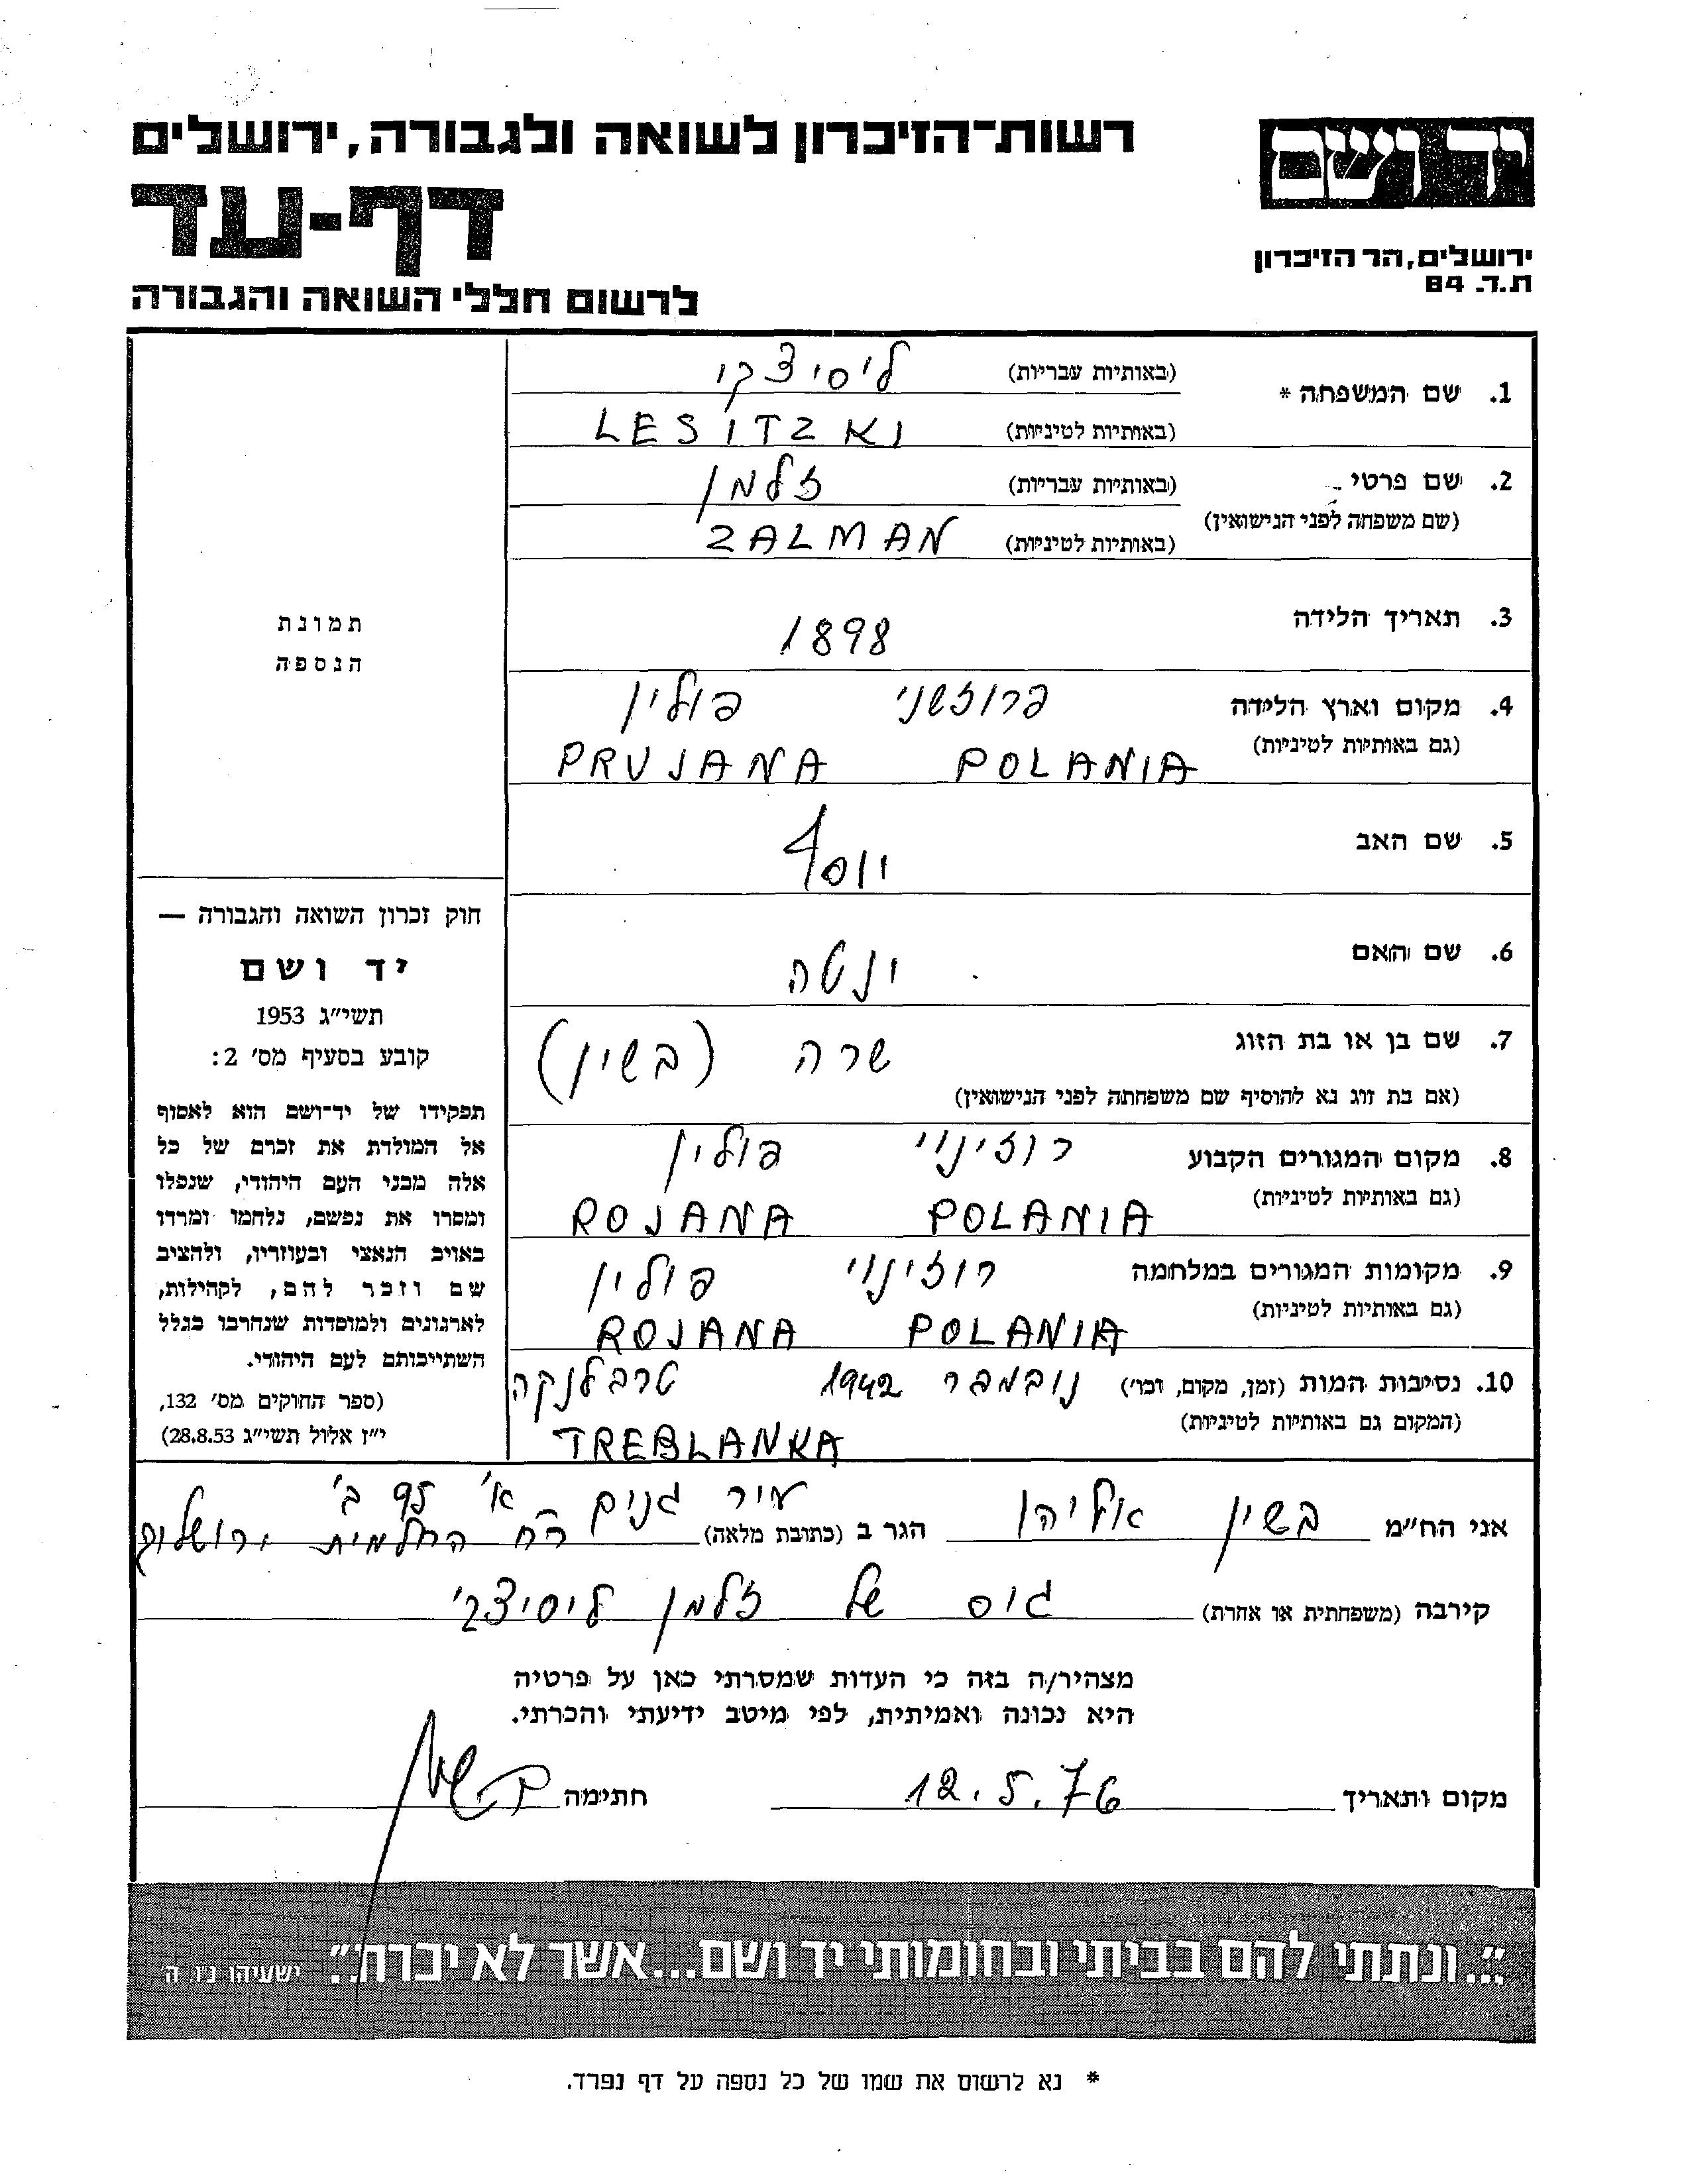 רשות־הזיכרון לשואה ולגבורה, ירושלים
דף-עד
לרשום חללי השואה והגבורה
יד ושם
ירושלים, הר הזיכרון
ת.ד. 84
1. שם המשפחה * (באותיות עבריות) ליסיצקי
(באותיות לטיניות) LESITZKI
2. שם פרטי (באותיות עבריות) זלמן
(שם משפחה לפני הנישואין)
(באותיות לטיניות) ZALMAN
3. תאריך הלידה 1898
4. מקום וארץ הלידה פרוזשני פולין
(גם באותיות לטיניות) PRUJANA POLANIA
5. שם האב יוסף
6. שם האם ינטה
7. שם בן או בת הזוג שרה (בשין)
(אם בת זוג נא להוסיף שם משפחתה לפני הנישואין)
8. מקום המגורים הקבוע רוזינוי פולין
(גם באותיות לטיניות) ROJANA POLANIA
9. מקומות המגורים במלחמה רוזינוי פולין
(גם באותיות לטיניות) ROJANA POLANIA
10. נסיבות המות (זמן, מקום, וכו') נובמבר 1942 טרבלנקה
(המקום גם באותיות לטיניות) TREBLANKA
תמונת
הנספה
חוק זכרון השואה והגבורה —
יד ושם
תשי"ג 1953
קובע בסעיף מס' 2:
תפקידו של יד־ושם הוא לאסוף
אל המולדת את זכרם של כל
אלה מבני העם היהודי, שנפלו
ומסרו את נפשם, נלחמו ומרדו
באויב הנאצי ובעוזריו, ולהציב
שם וזכר להם, לקהילות,
לארגונים ולמוסדות שנחרבו בגלל
השתייכותם לעם היהודי.
(ספר החוקים מס' 132,
י"ז אלול תשי"ג 28.8.53)
אני הח"מ בשין אליהו הגר ב (כתובת מלאה) עיר גנים א' 95 ב'
רח החלמית ירושלים
קירבה (משפחתית או אחרת) גיס של זלמן ליסיצקי
מצהיר/ה בזה כי העדות שמסרתי כאן על פרטיה
היא נכונה ואמיתית, לפי מיטב ידיעתי והכרתי.
מקום ותאריך 12.5.76 חתימה
"...ונתתי להם בביתי ובחומותי יד ושם...אשר לא יכרת." ישעיהו נ"ו ה'
* נא לרשום את שמו של כל נספה על דף נפרד.